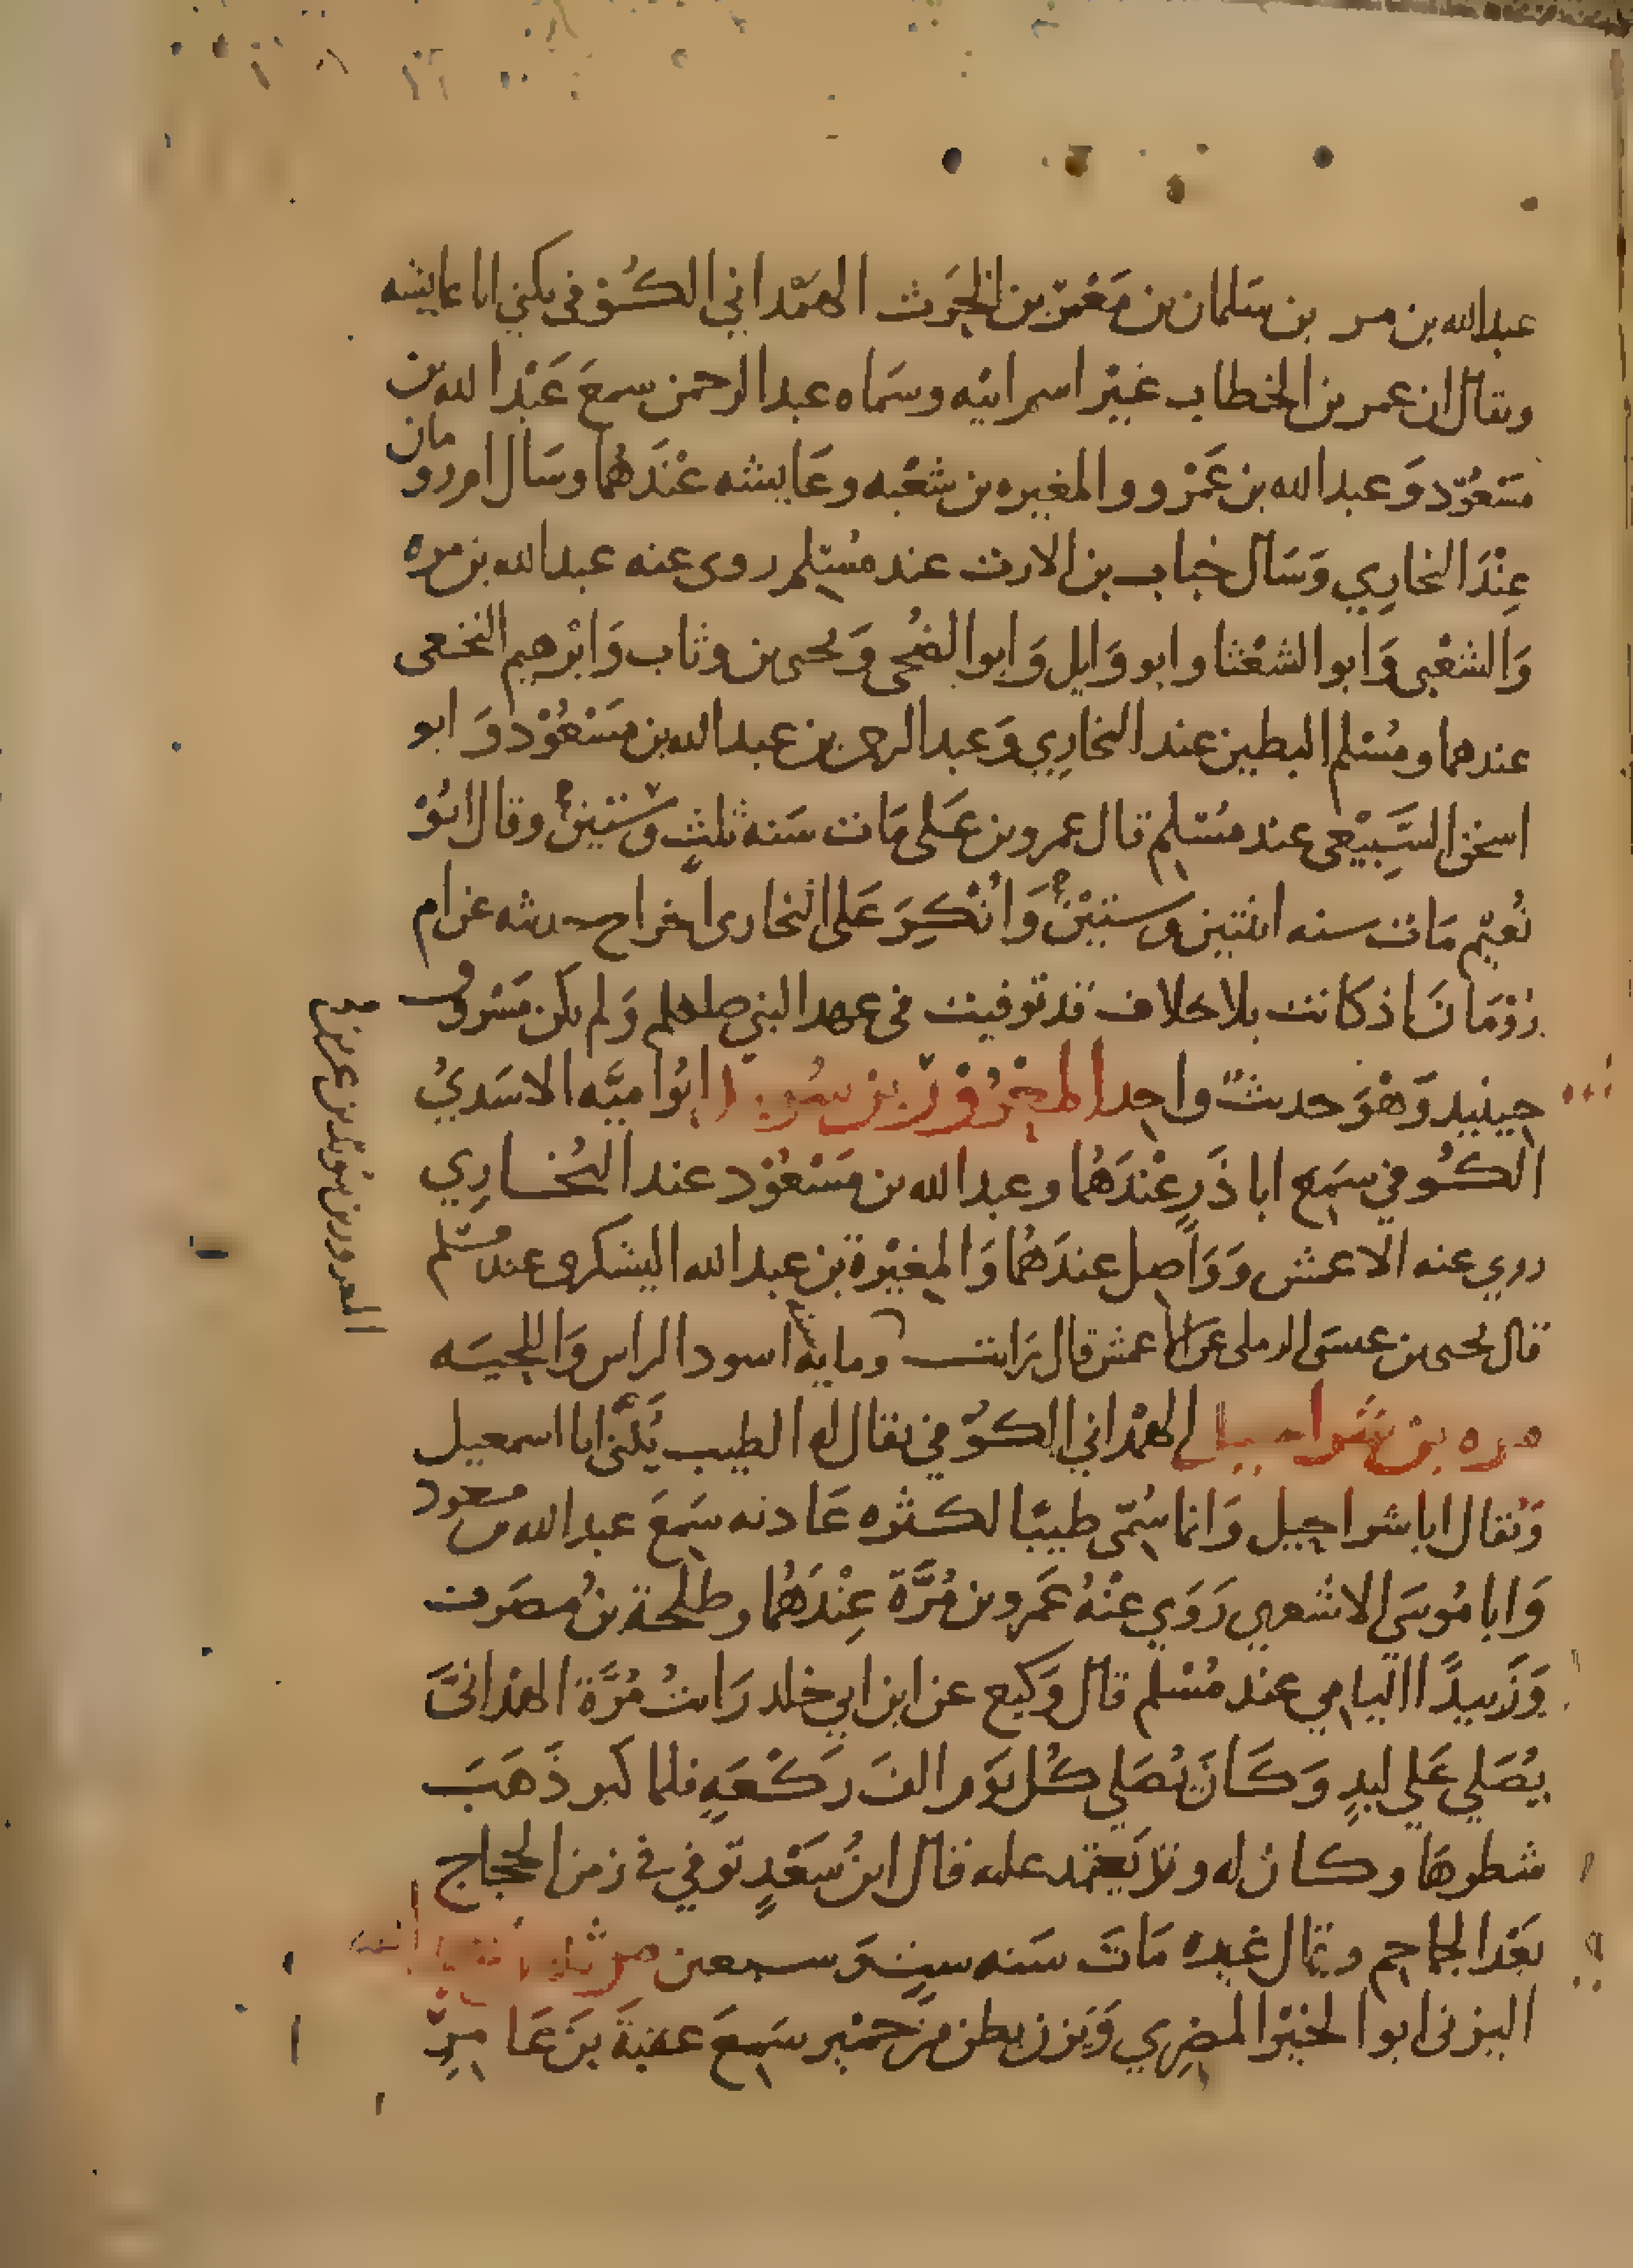 عبد الله بن مر بن سلمان بن مَعْمَر بن الحَرث الهَمْداني الكُوفي يكنى ابا عايشه
ويقال ان عمر بن الخطاب غيّر اسم ابيه وسَماه عبد الرحمن سمعَ عَبْد الله بن
مَسْعُوْد وَعبد الله بن عَمْرو والمغيره بن شعْبه وعَايشه عْندَهُما وسَال ام رومان
عِنْدَ البخارِي وَسَال خباب بن الارت عند مسْلم روى عنه عبد الله بن مره
وَالشعْبى وَابوا الشعْثا وابو وَايل وَابوا الضُحى وَيحيى بن وثاب وَابْرهيم النخعى
عندهما ومسُلم البطين عند البخارِي وَعبد الرحمن بن عبد الله بن مَسْعُوْد وَابو
اسحق السَّبِيْعى عند مسْلم قال عمرو بن عَلى مَات سَنه ثلثٍ وستين وقال ابُوْ
نُعيْم مَات سنه اثنتين وستيْن وَانْكِرَ عَلى البخارى اخراج حديثه عن ام
رُوْمَان اذ كانت بلا خلاف قد توفيت فى عهد النبي صلعلم وَلم يكن مَسْروق
حينيد وَهْوَ حديث واحد المَعْرُوْر بن سُويد ابُوا ميَّه الاسَديُ
الكُوفي سَمِع ابا ذَرٍ عْندَهُما وعبد الله بن مَسْعُوْد عند البُخَارِي
روي عنه الاعمش وَوَاصِل عندَهُما وَالمغيْرة بن عبد الله اليشكرى عند مسْلم
قال يحيى بن عيسَى الرملى عن الاعمش قال رَايت وما يه سنه اسود الراس وَاللحيَه
مره بن شَراحيل الهمْداني الكوُفي يقال له الطيب يُكنَّى ابا اسمعيل
وَيُقال ابا شراحيل وَانما سُمّى طيبًا لكثره عَبادته سَمعَ عبد الله بن مسعود
وَابا مُوسَى الاشعري رَوَي عْنْهُ عَمرو بن مُرَّةَ عِنْدَهُما وطلحة بنُ مُصَرف
وَزُبيدً االيامي عند مُسْلم قال وَكيع عن ابن ابي خالد رَايتُ مُرَّة الهمْدانىَّ
يُصَلي عَلي لبدٍ وَكَانَ يُصَلي كُل يوَم الفَ رَكْعَهٍ فلما كبر ذَهَبَ
شطرهَا وكان له وتد يَعتمد عليه قال ابنُ سَعْدٍ توفي في زمن الحجاج
بَعْد الجماجم وقال غيره مَاتَ سَنه ستٍ وَسبعين مرثد
اليزنى ابوا الخيْر المضرِي وَيزن بطن من حمْير سَمِعَ عقبةَ بنَ عَامِرٍ
المعرور بن سُويد